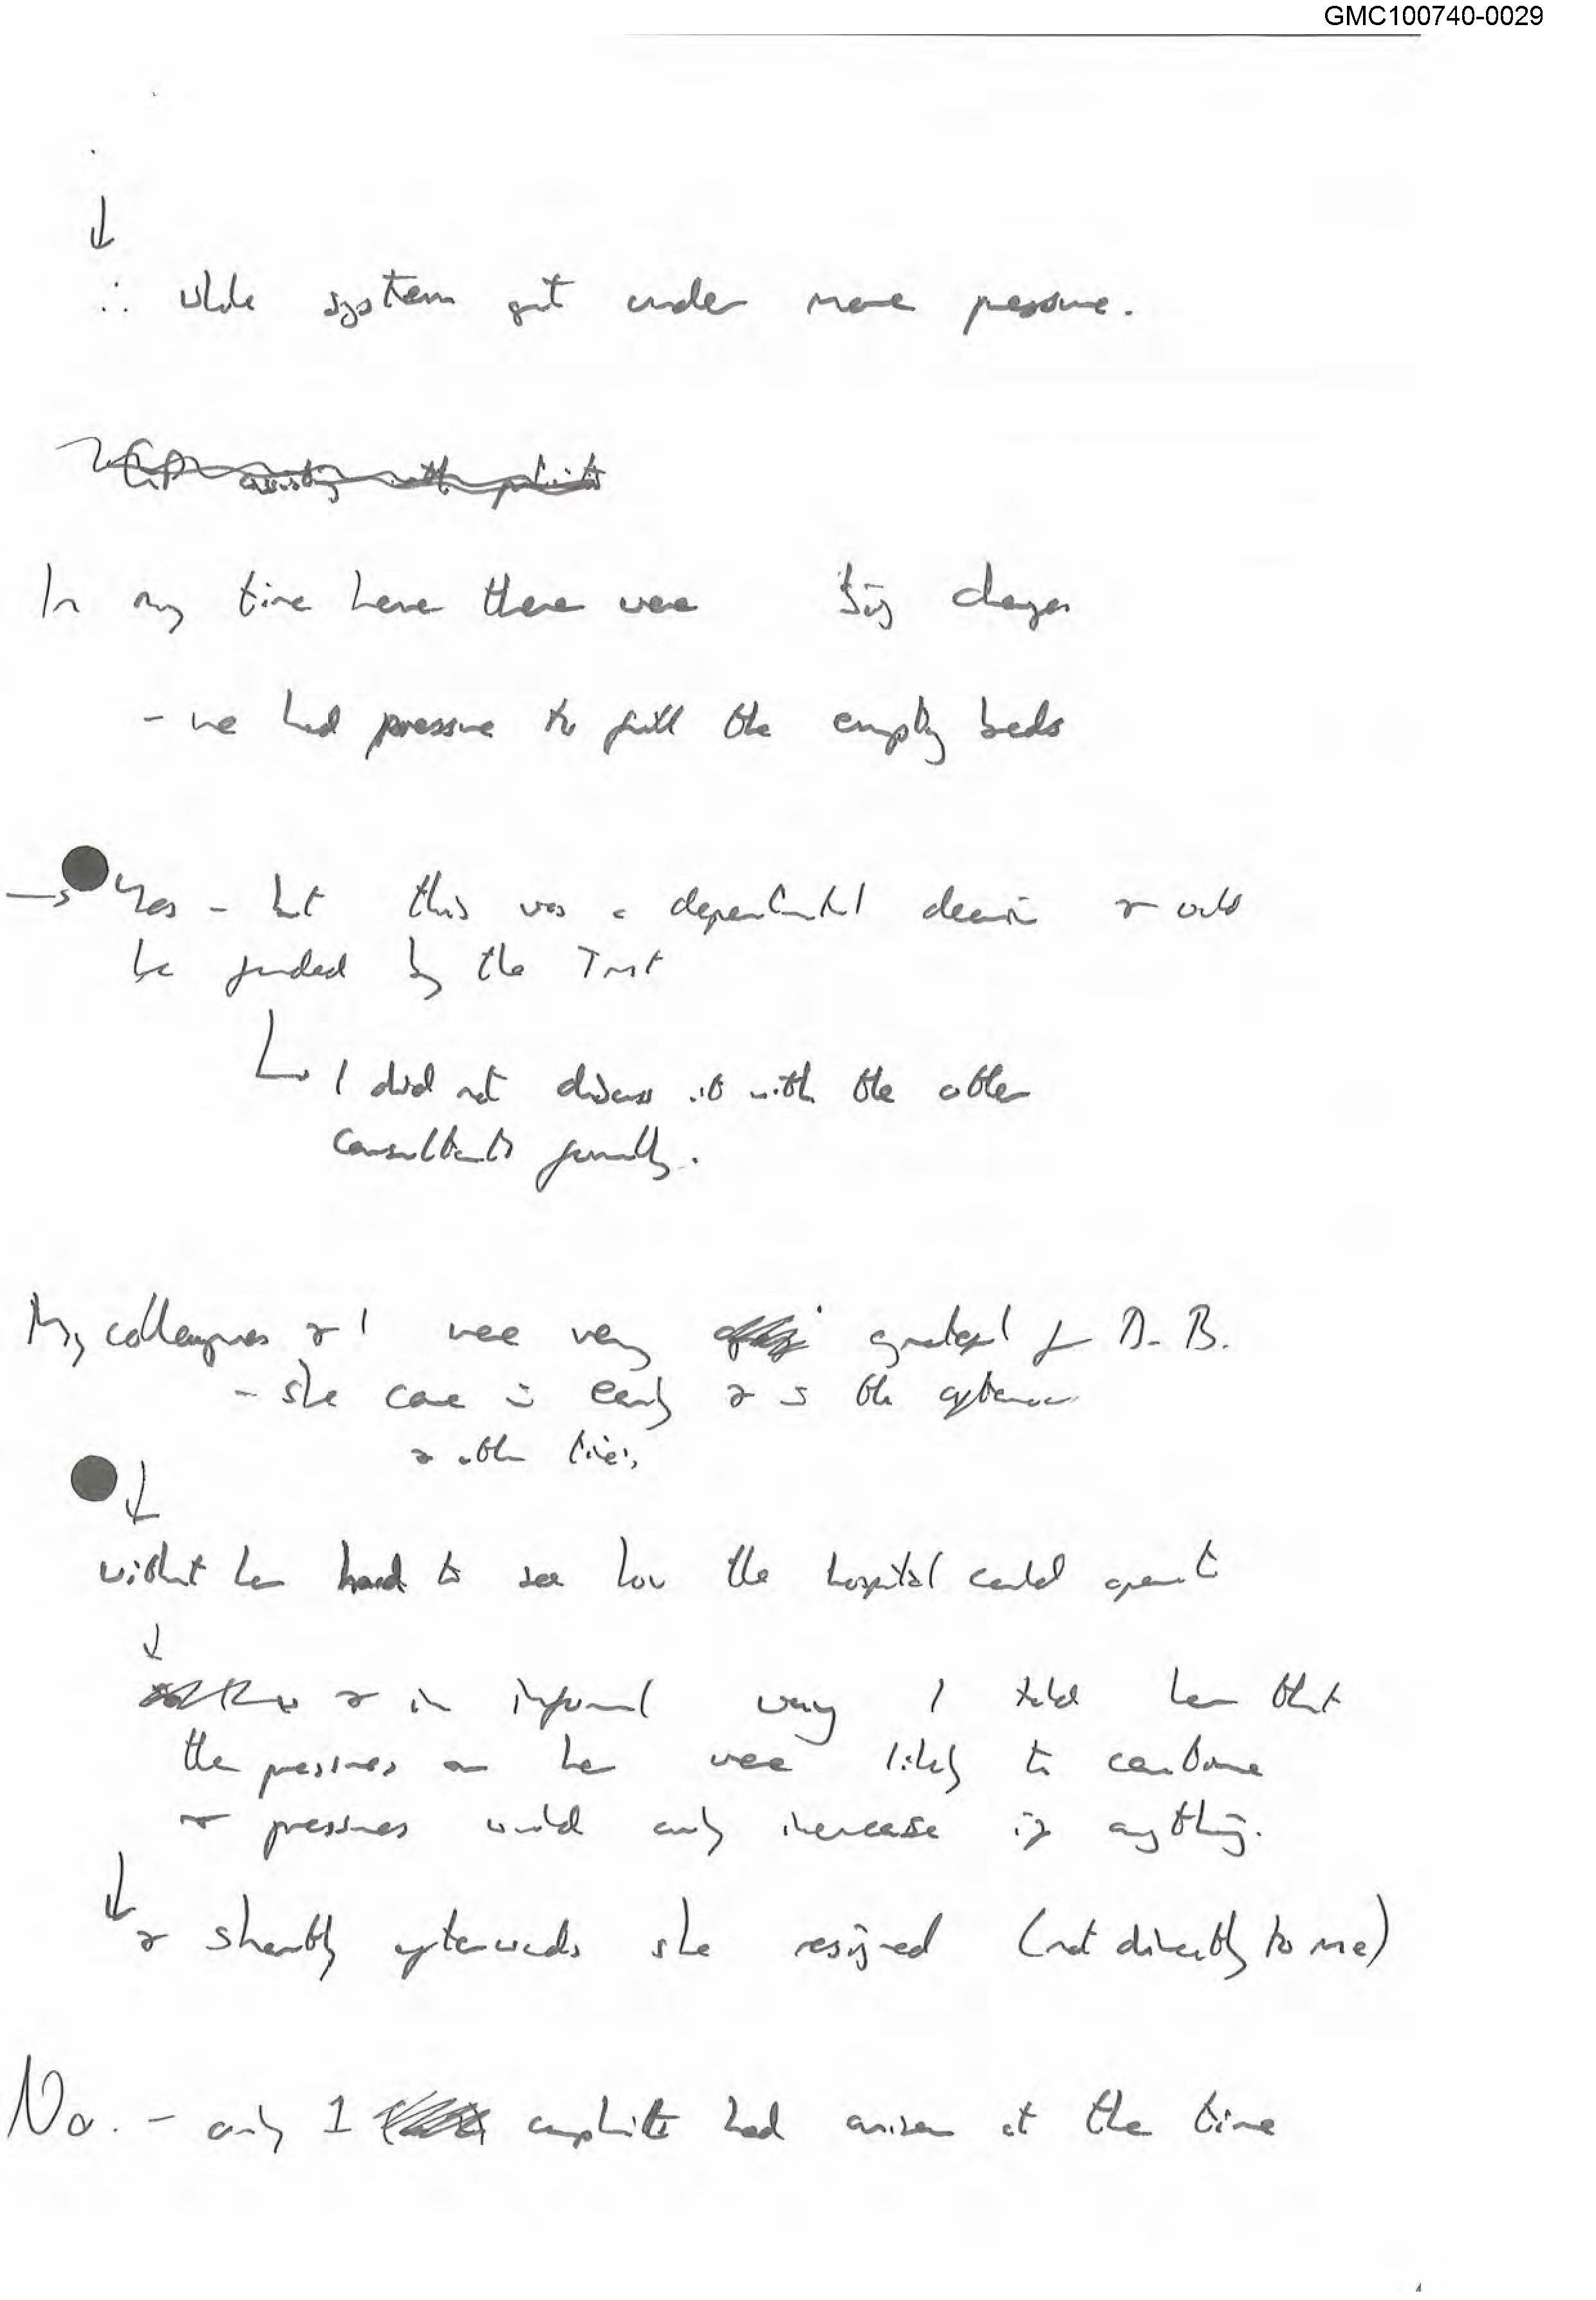 GMC100740-0029
↓
∴ whole system got under more pressure.
In my time here there were big changes
- we had pressure to fill the empty beds
→ Yes - but this was a departmental decision & could
be funded by the Trust
I did not discuss it with the other
consultants formally.
My colleagues & I were very grateful for Dr. B.
- she came in early & in the afternoon
& other times
↓
without her hard to see how the hospital could operate
↓
& in informal way I told her that
the pressures on her were likely to continue
& pressures would only increase if anything.
↓
& shortly afterwards she resigned (not directly to me)
No. - only 1 complaint had arisen at the time